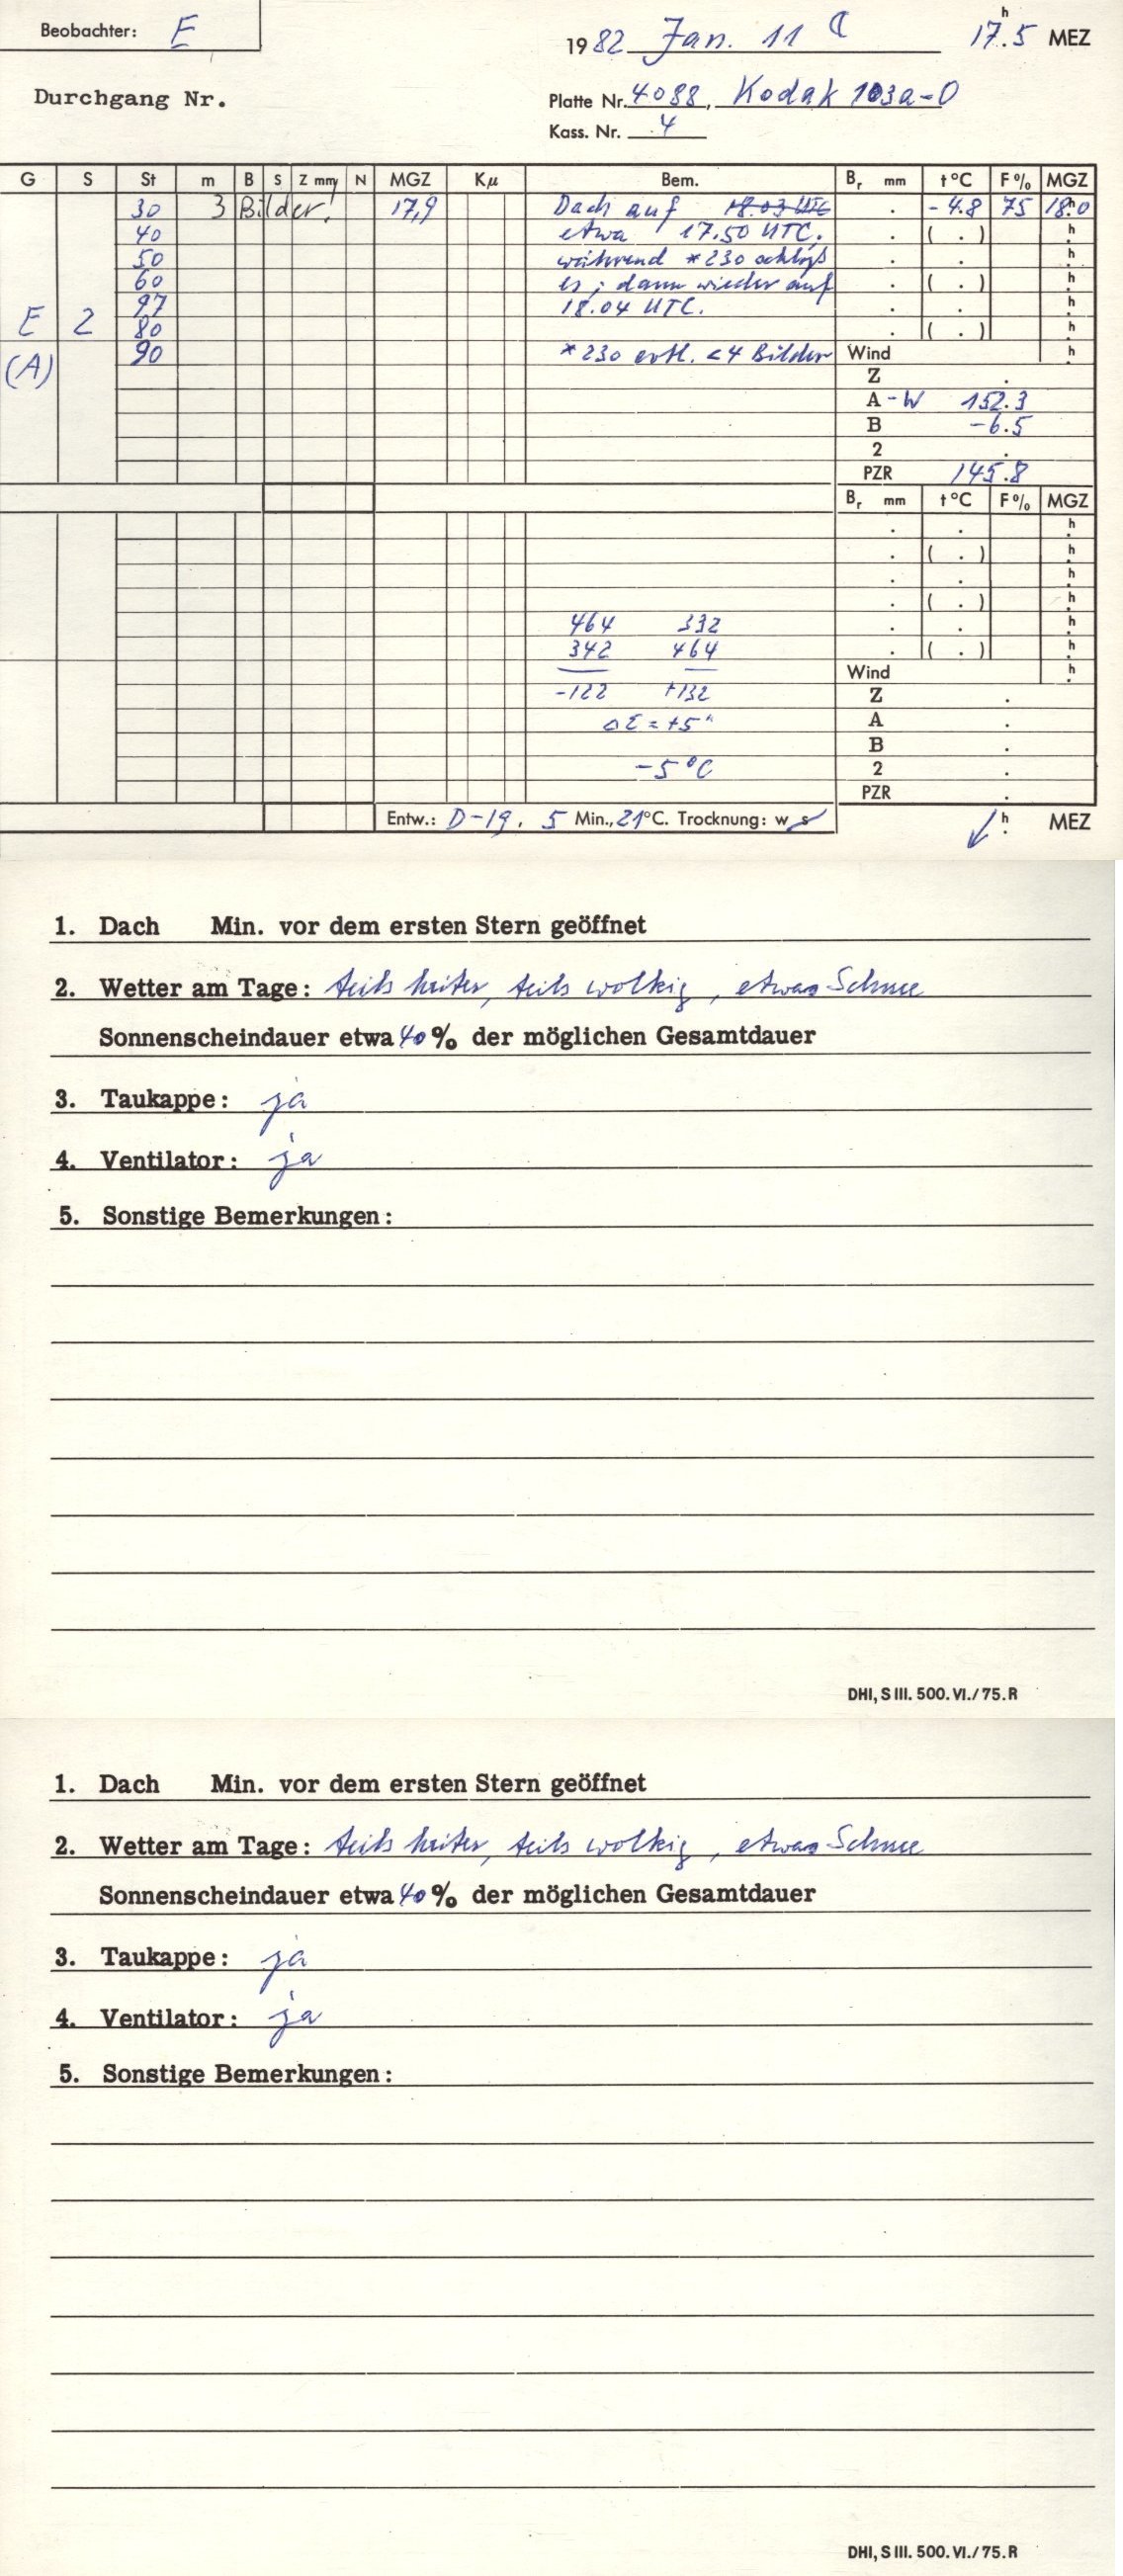 Beobachter: E
1982 Jan. 11 ☾ 17.5 h MEZ
Durchgang Nr.
Platte Nr. 4088, Kodak 103a-O
Kass. Nr. 4
G S St m B S Z mm N MGZ Kµ Bem. Br mm t °C F% MGZ
30 3 Bilder! 17,9 Dach auf 18.03 UTC . -4.8 75 18.0 h
40 etwa 17.50 UTC. . ( . ) h
50 während *230 schloß . . h
60 es; dann wieder auf . ( . ) h
97 18.04 UTC. . . h
E 2 80 . ( . ) h
(A) 90 *230 evtl. <4 Bilder Wind h
Z .
A - W 152.3
B -6.5
2 .
PZR 145.8
Br mm t °C F% MGZ
. . h
. ( . ) h
. . h
. ( . ) h
464 332 . . h
342 464 . ( . ) h
Wind h
-122 +132 Z .
Δ Σ = +5" A .
B .
-5°C 2 .
PZR .
Entw.: D-19, 5 Min., 21°C. Trocknung: w s h MEZ
1. Dach Min. vor dem ersten Stern geöffnet
2. Wetter am Tage: teils heiter, teils wolkig, etwas Schnee
Sonnenscheindauer etwa 40% der möglichen Gesamtdauer
3. Taukappe: ja
4. Ventilator: ja
5. Sonstige Bemerkungen:
DHI, S III. 500. VI./75. R
1. Dach Min. vor dem ersten Stern geöffnet
2. Wetter am Tage: teils heiter, teils wolkig, etwas Schnee
Sonnenscheindauer etwa 40% der möglichen Gesamtdauer
3. Taukappe: ja
4. Ventilator: ja
5. Sonstige Bemerkungen:
DHI, S III. 500. VI./75. R